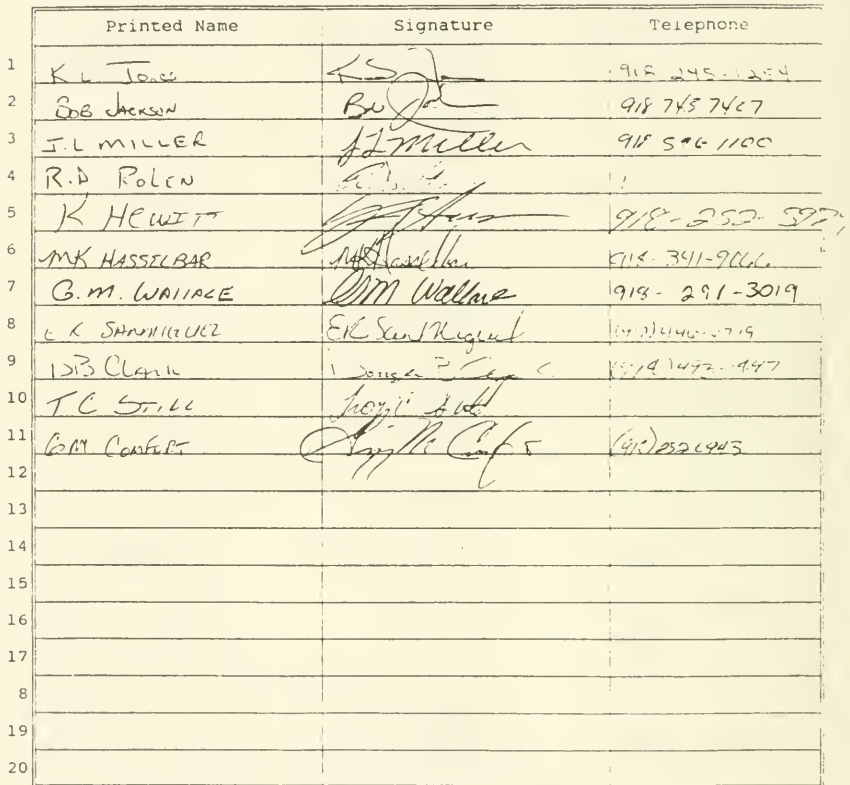 Printed Name Signature Telephone
1 K L Jones
2 BOB JACKSON 918 745 7467
3 J.L MILLER JL Miller 918 596 1100
4 R.D POLEN
5 K HEWITT 918-252-592
6 MK HASSELBAR MK Hasselbar 918-341-9066
7 G.M. WALLACE GM Wallace 918-291-3019
8 E K SANMIGUEZ EK San Miguel
9 DB CLARK
10 T C STILL
11 GM COMFORT (918)252 6943
12
13
14
15
16
17
8
19
20